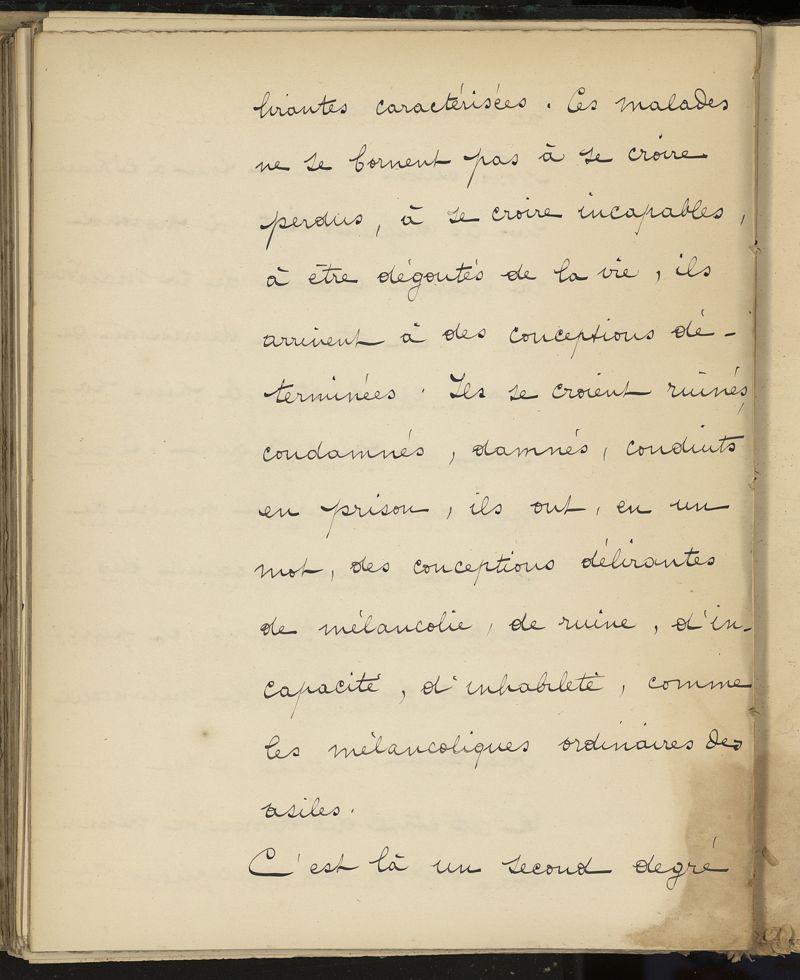 lirantes caractérisées. Ces malades
ne se bornent pas à se croire
perdus, à se croire incapables,
à être dégoutés de la vie, ils
arrivent à des conceptions dé-
terminées. Ils se croient ruinés,
condamnés, damnés, conduits
en prison, ils ont, en un
mot, des conceptions délirantes
de mélancolie, de ruine, d'in-
capacité, d'inhabileté, comme
les mélancoliques ordinaires des
asiles.
C'est là un second degré